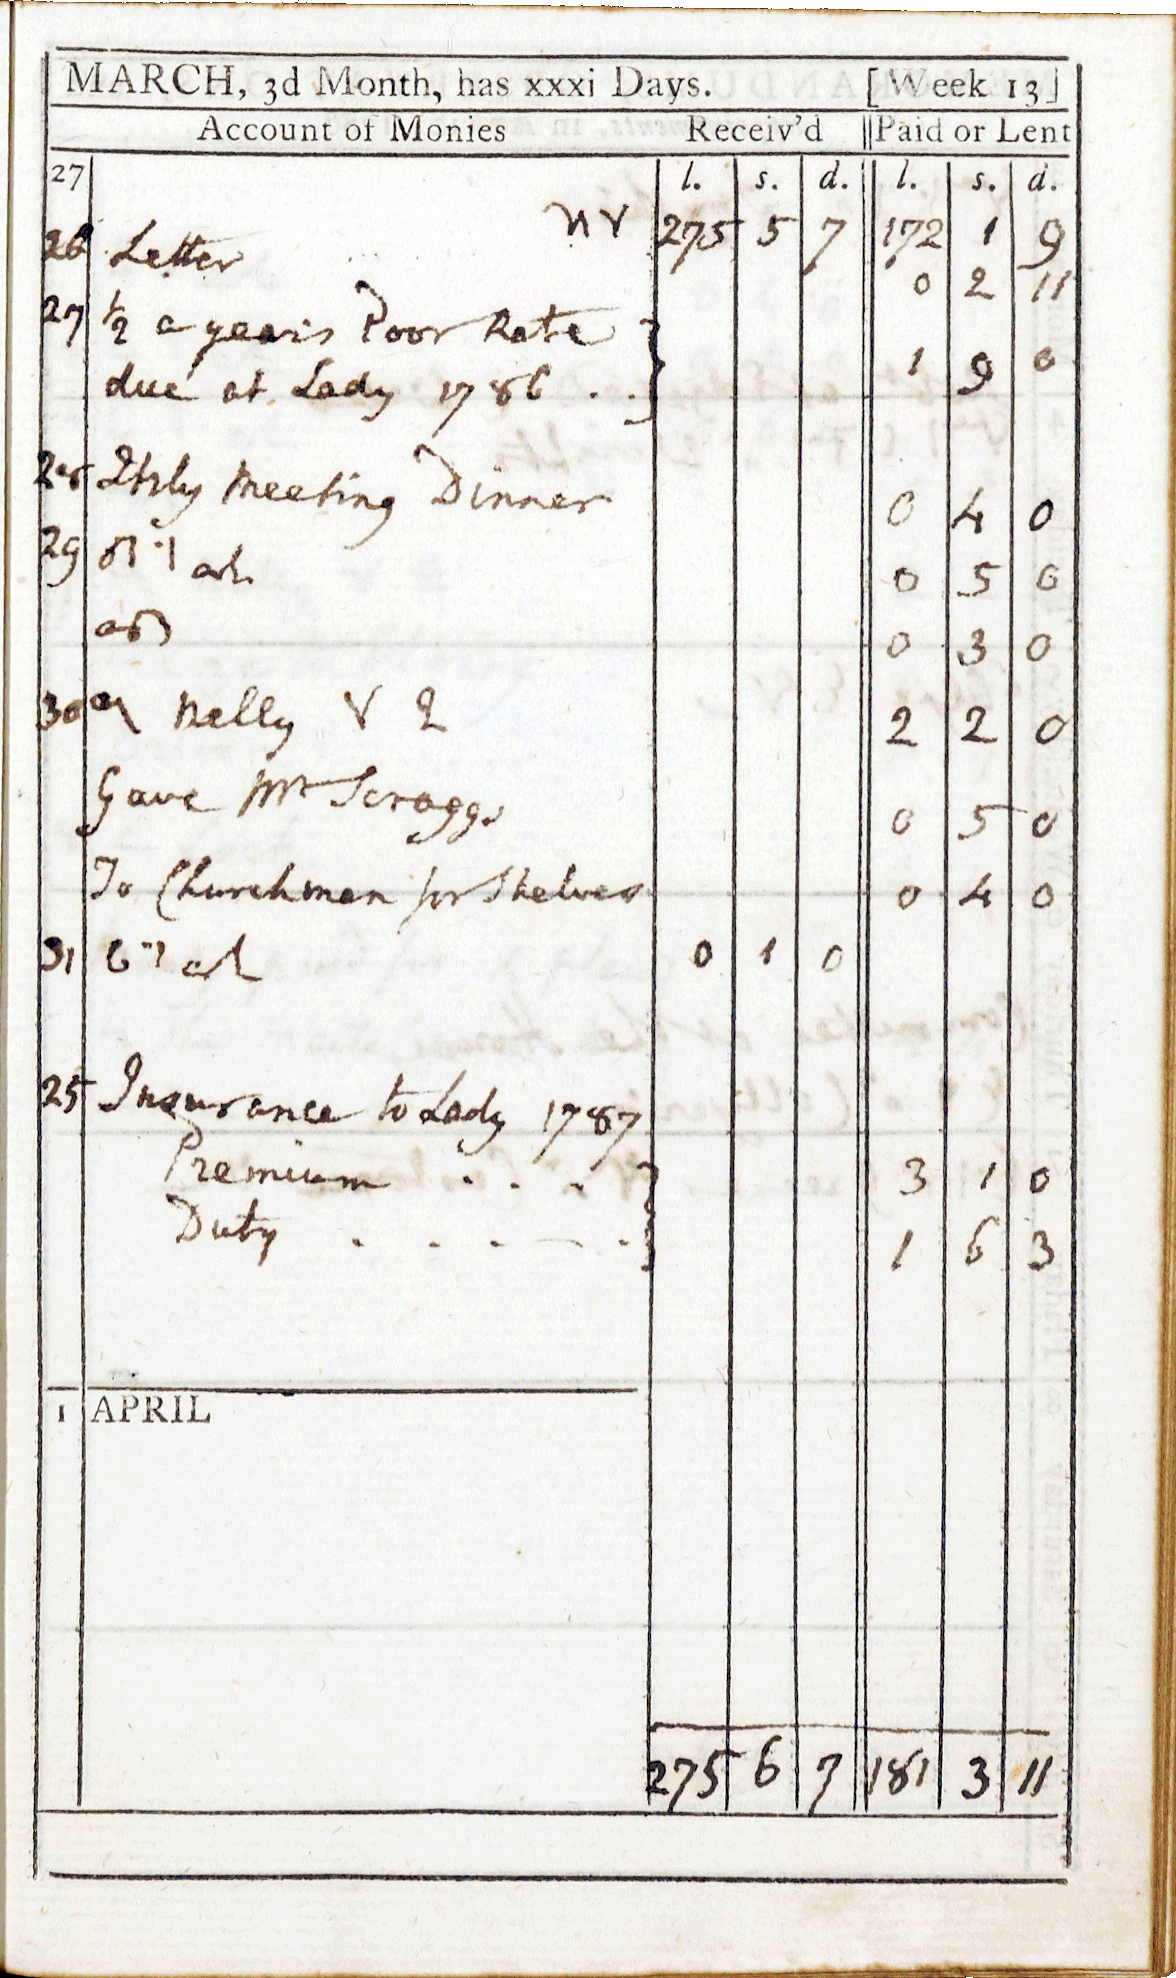 MARCH, 3d Month, has xxxi Days. [Week 13]
Account of Monies Receiv'd Paid or Lent
27 l. s. d. l. s. d.
275 5 7 172 1 9
26 Letter 0 2 11
27 ½ a years Poor Rate
due at Lady 1786 . . 1 9 0
28 Meeting Dinner 0 4 0
29 0 5 0
0 3 0
30 Nelly V 2 2 0
Gave Mr Scraggs 0 5 0
To Churchman for Shelves 0 4 0
31 0 1 0
25 Insurance to Lady 1787
Premium . . . 3 1 0
Duty . . . . 1 6 3
1 APRIL
275 6 7 181 3 11